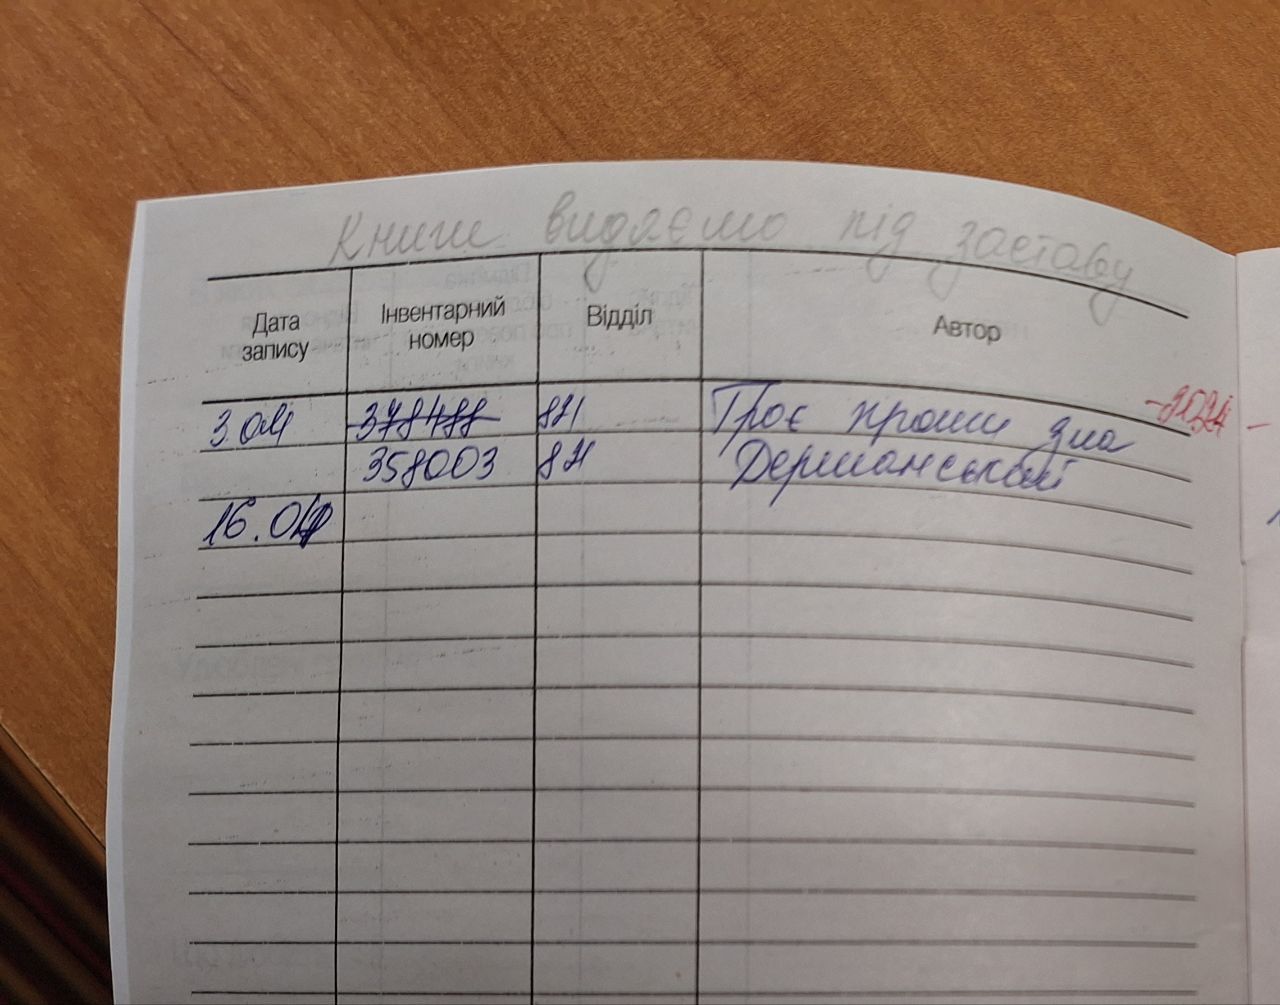 Книги видяємо під заставу
Дата запису Інвентарний номер Відділ Автор
3.04 378488 8Ч1 Троє проти зла -2024-
358003 8Ч Дерманський
16.04